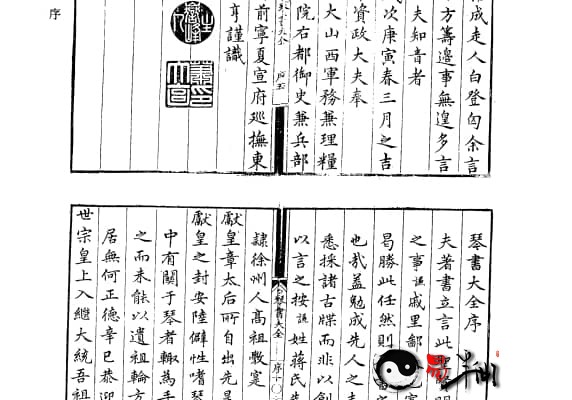 成走人白登匄余言
方籌邊事無遑多言
夫知音者
次庚寅春三月之吉
資政大夫奉
大山西軍務兼理糧
院右都御史兼兵部
書大全 序 五
前寧夏宣府巡撫東
亨謹識
序
琴書大全序
夫著書立言此聖
之事詎戚里鄙
曷勝此任然則
也哉盖勉成先人之
悉採諸古牒而非以創
以言之按詎姓蔣氏
琴書大全 序
隸徐州人高祖斆寔
獻皇章太后所自出先是
獻皇之封安陸僻性嗜琴
中有關于琴者輙爲手
之而未能以遺祖輪方
居無何正德辛巳恭迎
世宗皇上入繼大統吾祖